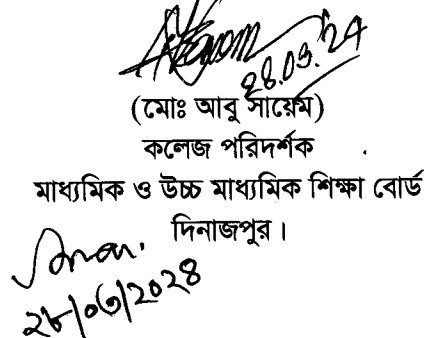 28.03.'24
(মোঃ আবু সায়েম)
কলেজ পরিদর্শক
মাধ্যমিক ও উচ্চ মাধ্যমিক শিক্ষা বোর্ড
দিনাজপুর।
২৮/০৩/২০২৪